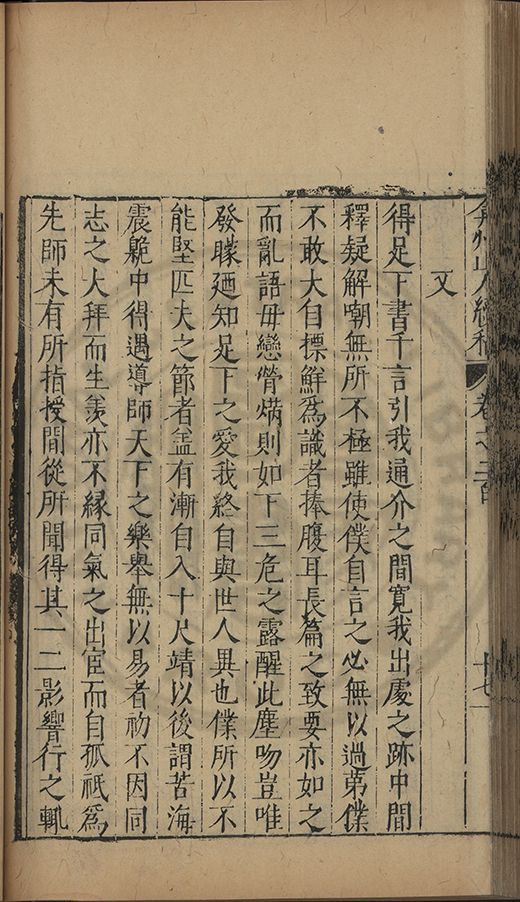 弇州山人續稿 卷之二百 十七
又
得足下書千言引我通介之間寛我出處之跡中間
釋疑解嘲無所不極雖使僕自言之必無以過第僕
不敢大自摽鮮為識者捧腹耳長篇之致要亦如之
而亂語毋戀膋爝則如下三危之露醒此塵吻豈唯
發矇廼知足下之愛我終自與世人異也僕所以不
能堅匹夫之節者盖有漸自入十尺靖以後謂苦海
震鼿中得遇導師天下之樂舉無以易者初不因同
志之大拜而生羨亦不縁同氣之出宦而自孤祇為
先師未有所指授間從所聞得其一二影響行之輒